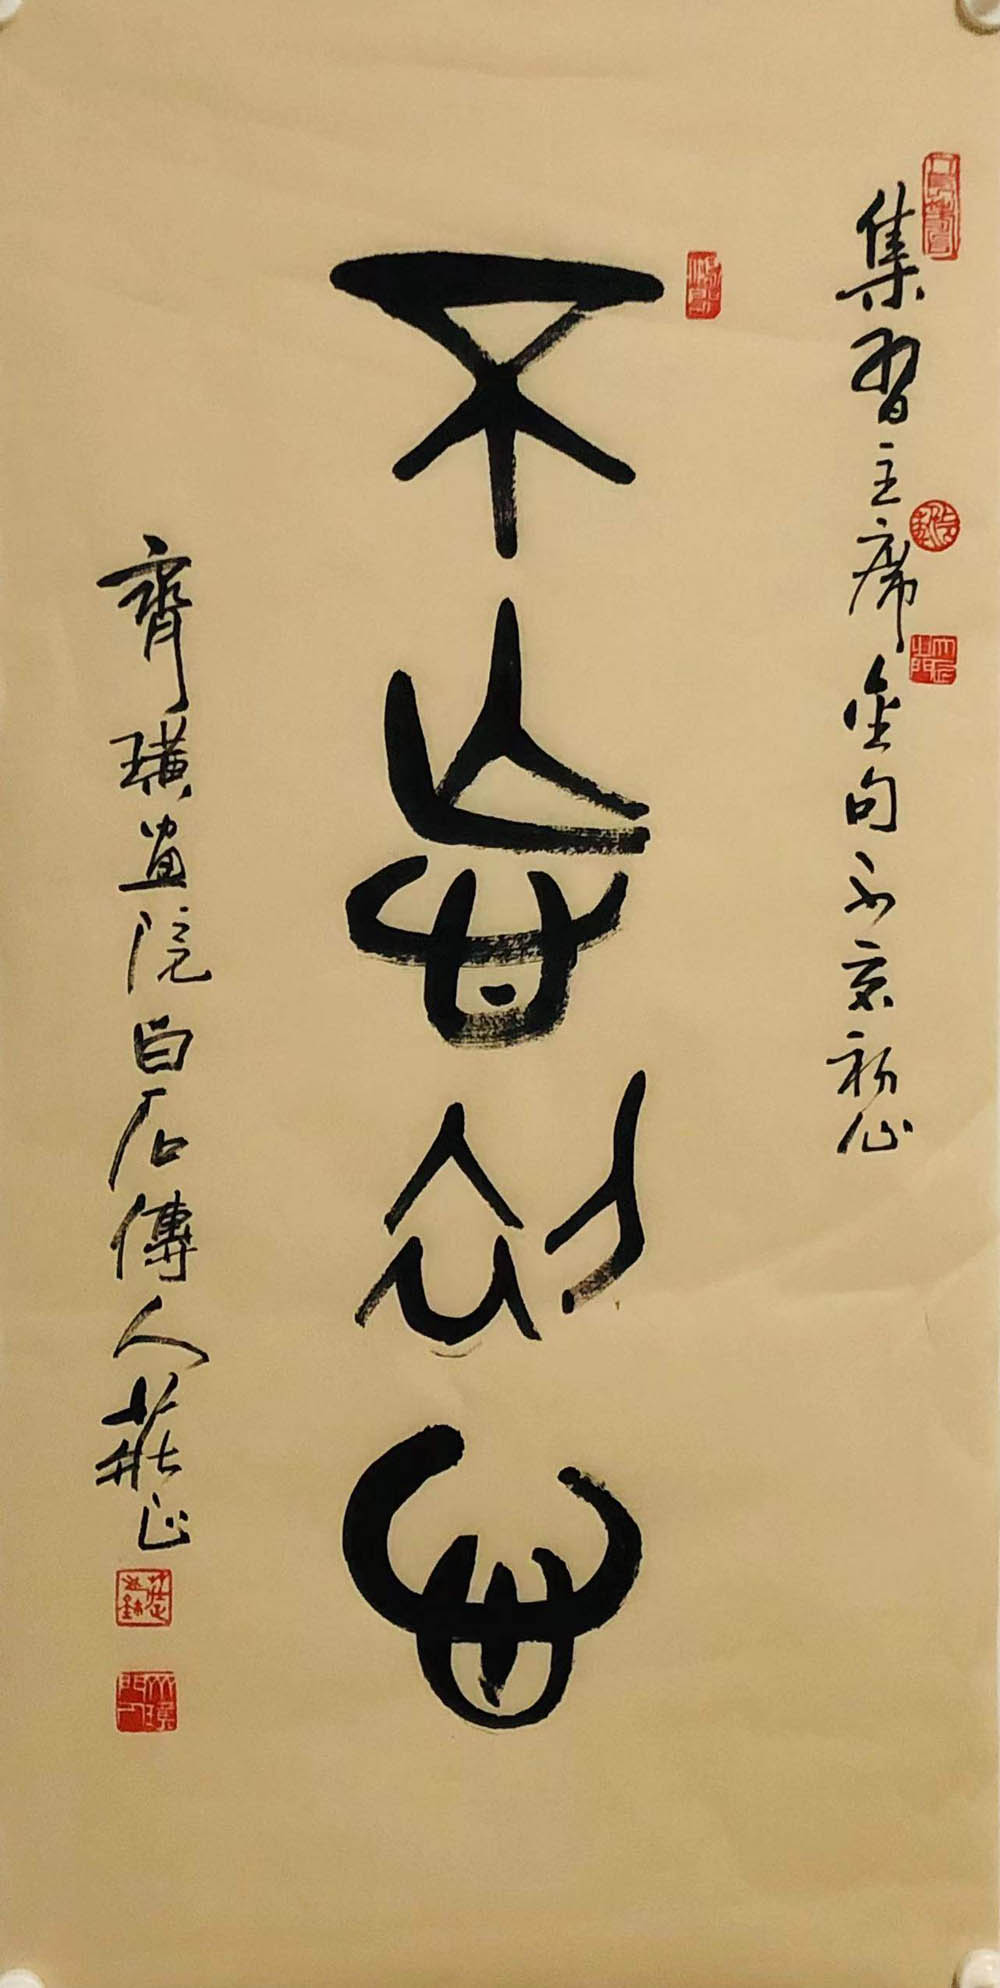 集習主席金句不忘初心
不忘初心
齊璜畫院白石傳人莊正